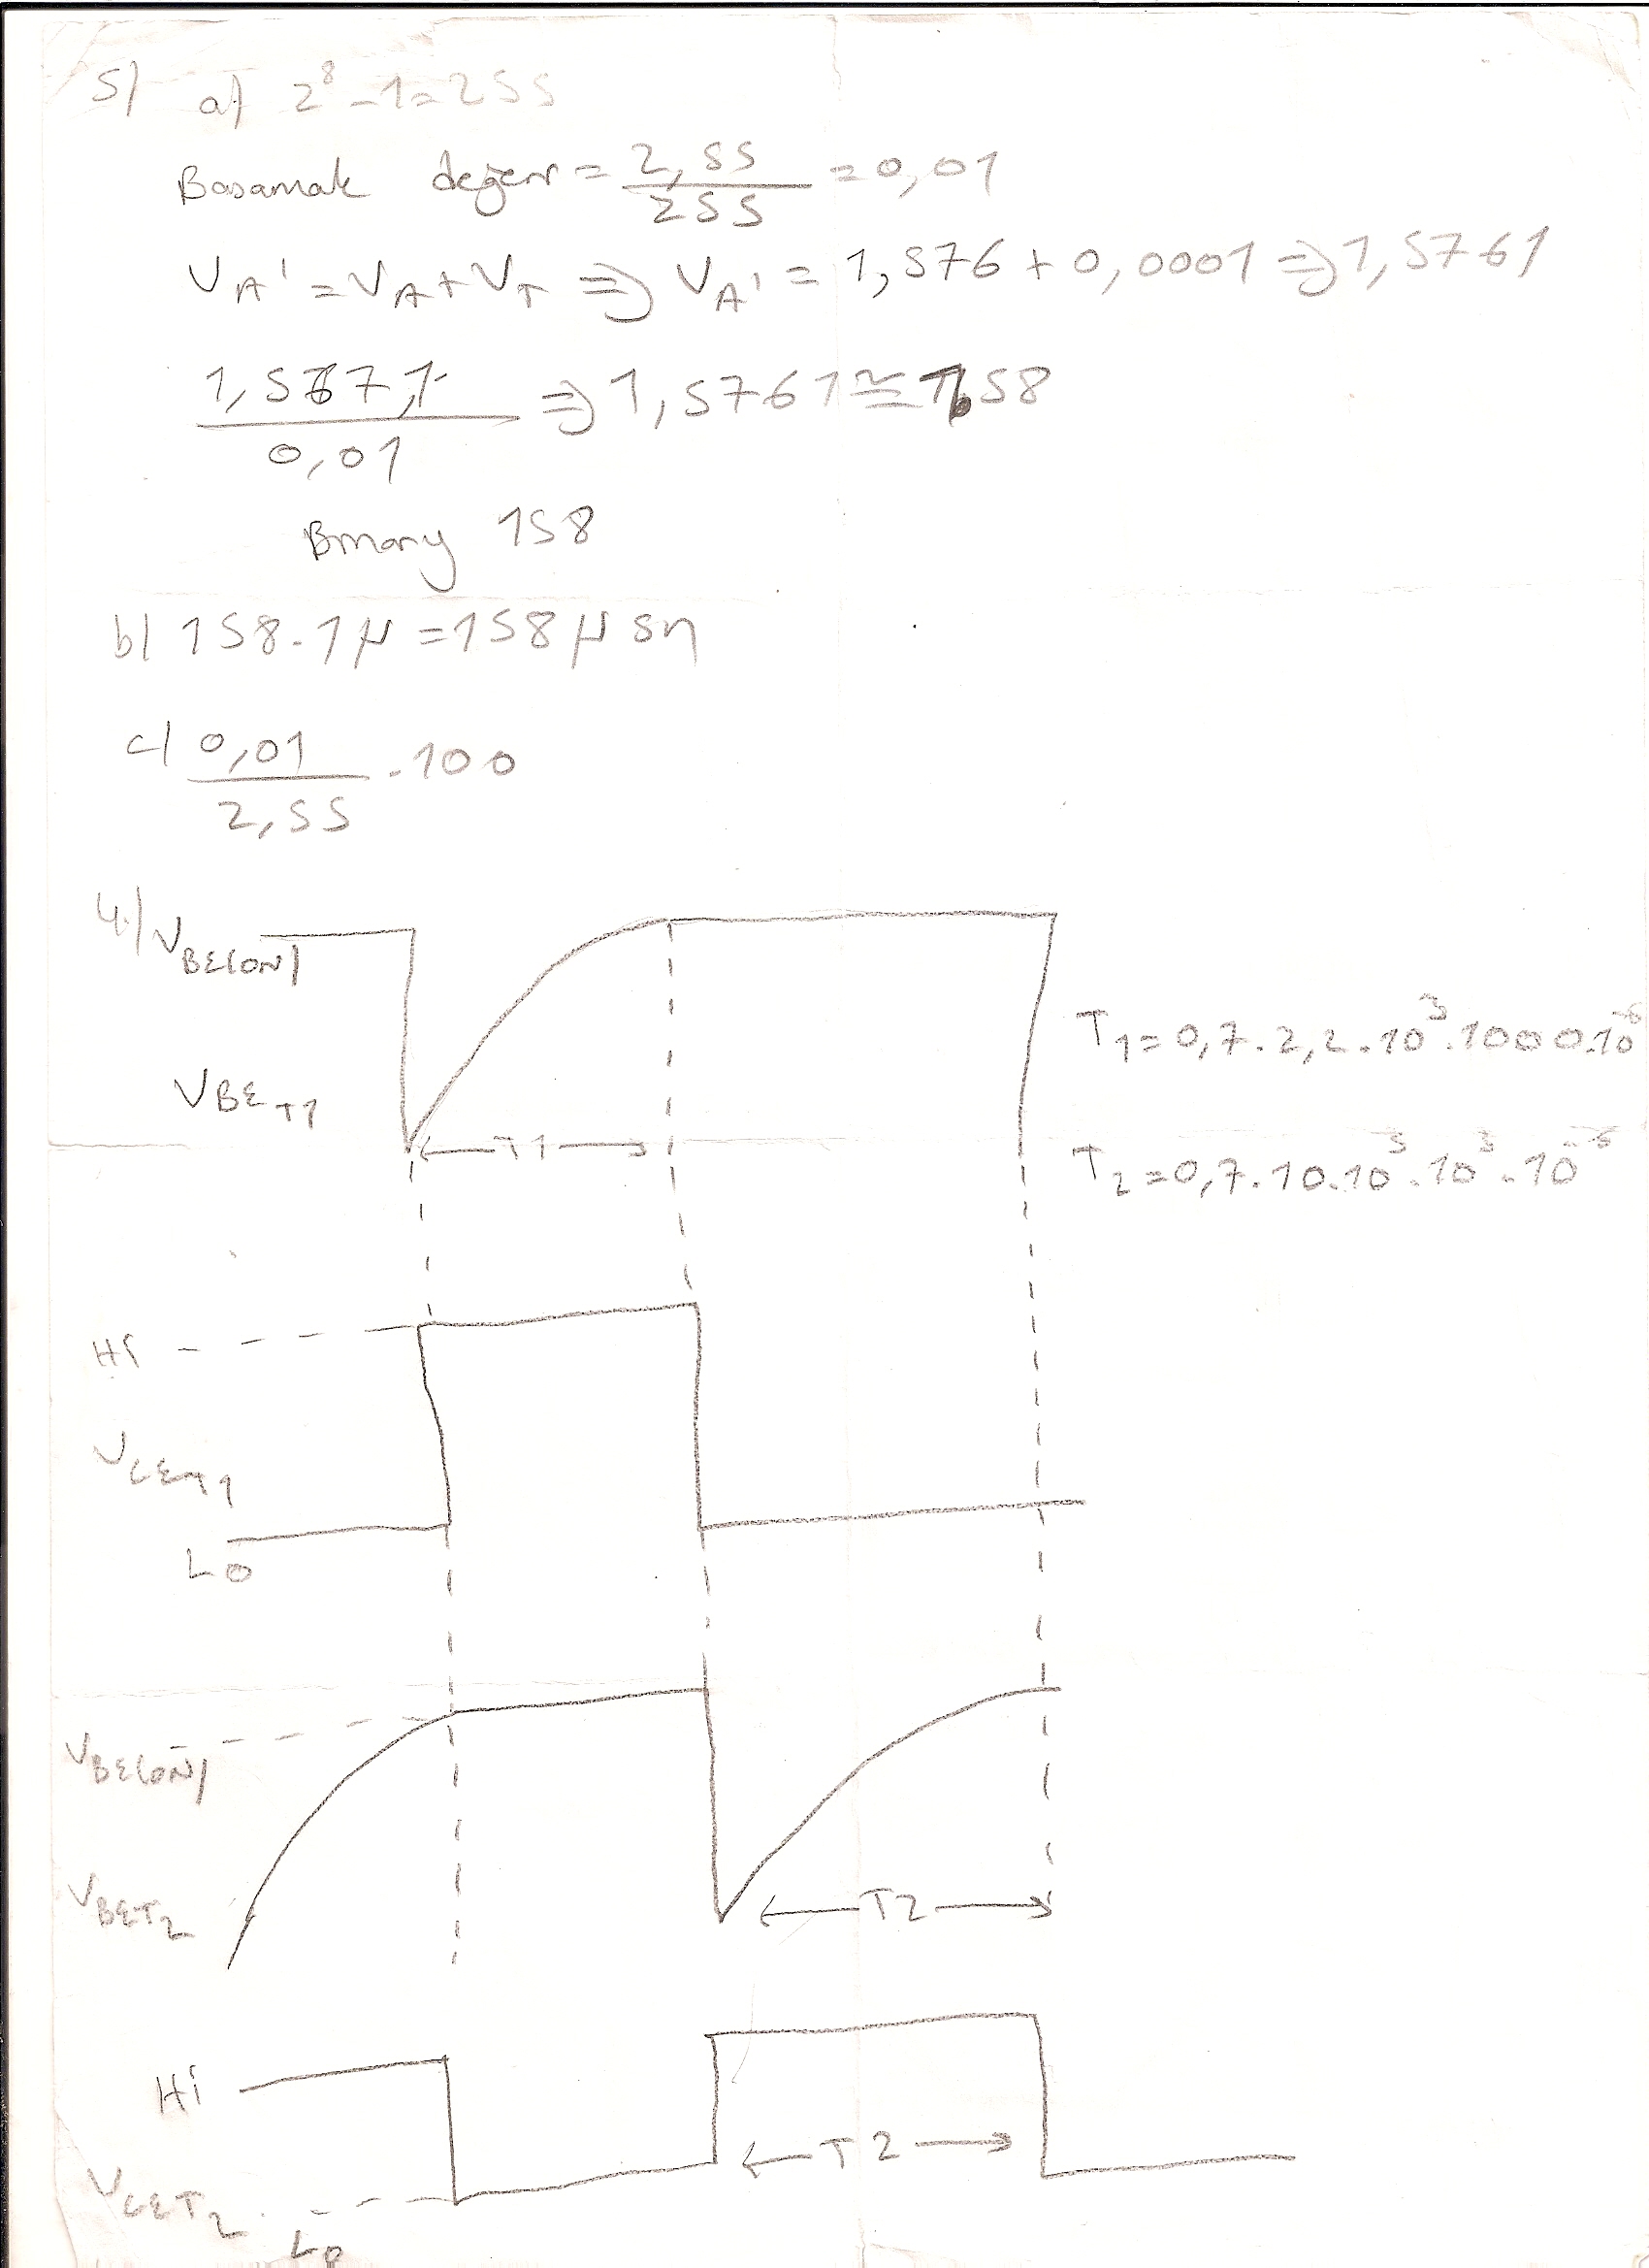 5) a) 2^8 - 1 = 255
Basamak değeri = 2,55 / 255 = 0,01
VA' = VA + VT ⇒ VA' = 1,576 + 0,0001 ⇒ 1,5761
/ 0,01 ⇒ 1,5761 ≅ 1,58
Binary 158
b) 158 . 1 μ = 158 μ sn
c) 0,01 / 2,55 . 100
4.) VBE(ON)
T1 = 0,7 . 2,2 . 10^3 . 1000 . 10^-6
VBE T1
T1
T2 = 0,7 . 10 . 10^3 . 10^3 . 10^-6
Hi
VCE T1
Lo
VBE(ON)
VBE T2
T2
Hi
T2
VCE T2
Lo